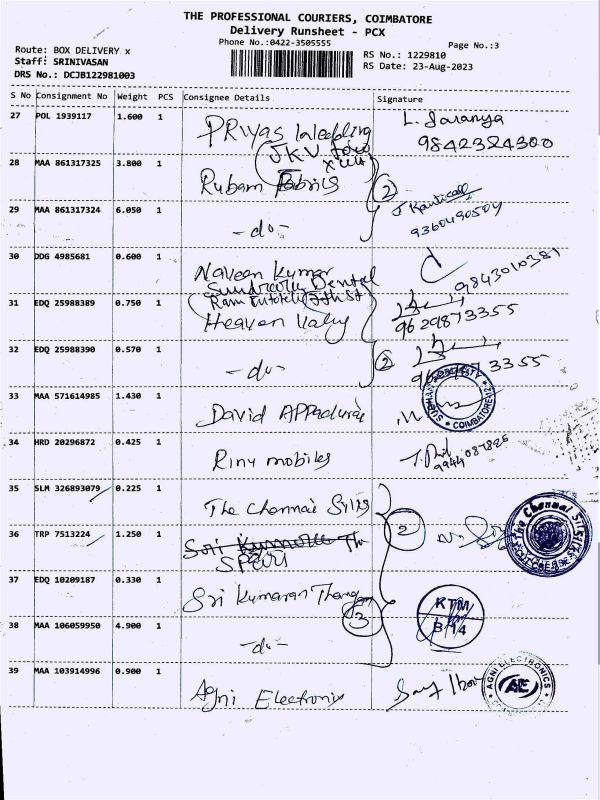 THE PROFESSIONAL COURIERS, COIMBATORE
Delivery Runsheet - PCX
Phone No.:0422-3505555
Page No.:3
Route: BOX DELIVERY x
Staff: SRINIVASAN
DRS No.: DCJB122981003
RS No.: 1229810
RS Date: 23-Aug-2023
S No Consignment No Weight PCS Consignee Details Signature
27 POL 1939117 1.600 1 PRIYAS Wedding L. Saranya
JKV 9842324300
28 MAA 861317325 3.800 1 Rubam Fabrics 2
29 MAA 861317324 6.050 1 -do- 9360490504
30 DDG 4985681 0.600 1 Naveen Kumar 9843010381
Dental
31 EDQ 25988389 0.750 1 Heaven Valley 9629873355
32 EDQ 25988390 0.570 1 -do- 2 3355
33 MAA 571614985 1.430 1 David Appadurai COIMBATORE
34 HRD 20296872 0.425 1 Riny mobiles
35 SLM 326893079 0.225 1 The Chennai Silks
36 TRP 7513224 1.250 1 Sri Kumaran Th 2 The Chennai Silks
37 EDQ 10209187 0.330 1 Sri Kumaran Thangam KTM
3 B-14
38 MAA 106059950 4.900 1 -do-
39 MAA 103914996 0.900 1 Agni Electronix AGNI ELECTRONICS AE